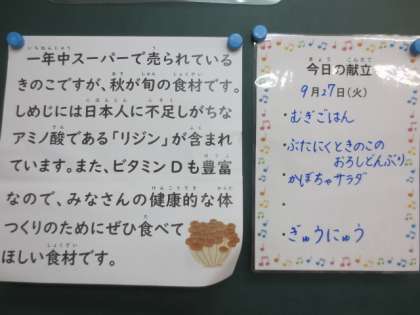 一年中スーパーで売られている
きのこですが、秋が旬の食材です。
しめじには日本人に不足しがちな
アミノ酸である「リジン」が含まれ
ています。また、ビタミンDも豊富
なので、みなさんの健康的な体
つくりのためにぜひ食べて
ほしい食材です。
今日の献立
9月27日(火)
・むぎごはん
・ぶたにくときのこの
おろしどんぶり
・かぼちゃサラダ
・
・ぎゅうにゅう